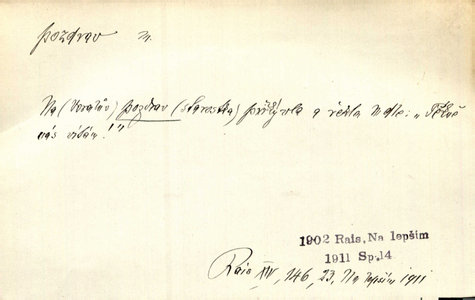 pozdrav m.
Na (Voralův) pozdrav (starostka) přikývla a řekla mdle: „Pěkně
nás vítám!"
1902 Rais, Na lepším
1911 Sp.14
Rais XIV, 146, 23, Na lepším 1911